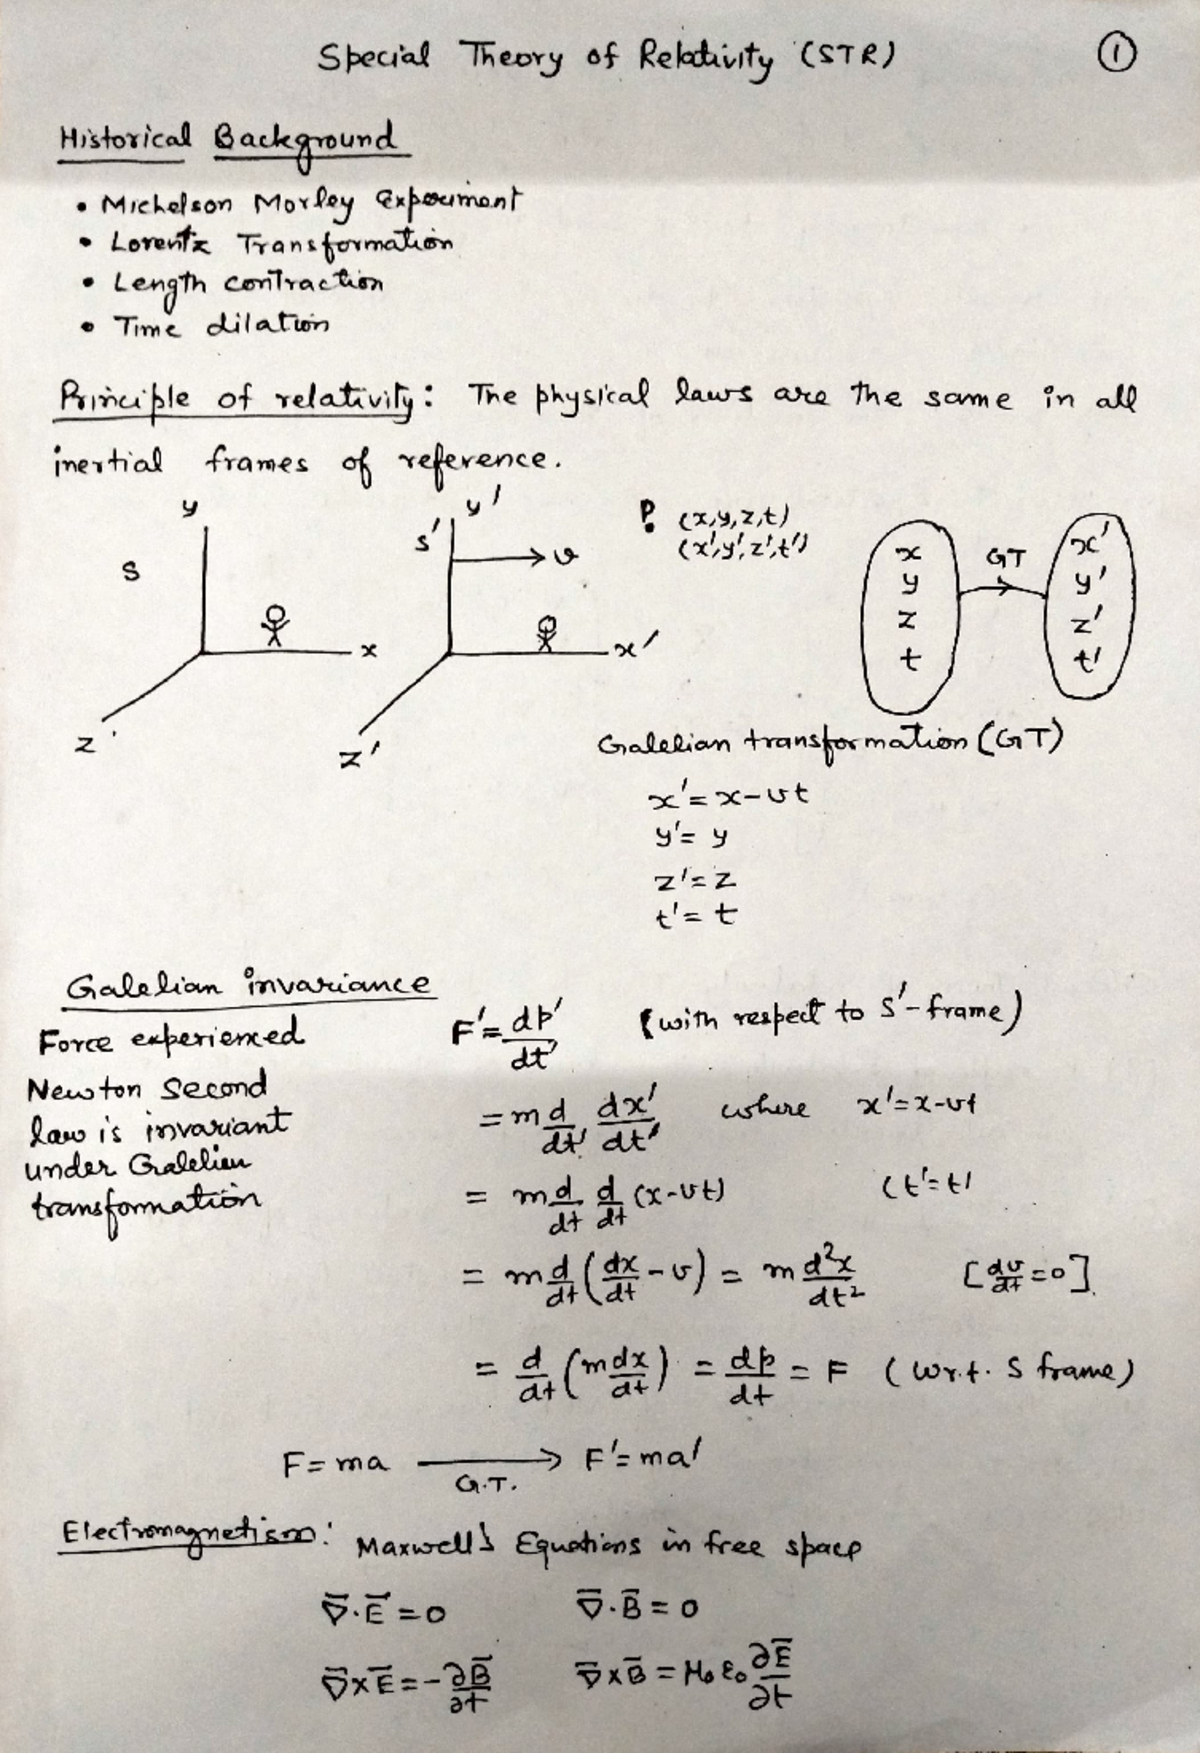 Special Theory of Relativity (STR)
①
Historical Background
• Michelson Morley Experiment
• Lorentz Transformation
• Length contraction
• Time dilation
Principle of relativity: The physical laws are the same in all
inertial frames of reference.
y
S
x
z
y'
S'
v
x'
z'
P. (x,y,z,t)
(x',y',z',t')
x
y
z
t
GT
x'
y'
z'
t'
Galelian transformation (GT)
x'=x-vt
y'= y
z'=z
t'= t
Galelian invariance
Force experienced
Newton second
law is invariant
under Galelien
transformation
F'=dp'/dt' (with respect to S'-frame)
=m d/dt' dx'/dt' where x'=x-vt
= m d/dt d/dt (x-vt) (t'=t)
= m d/dt (dx/dt - v) = m d²x/dt² [dv/dt=0]
= d/dt (m dx/dt) = dp/dt = F (w.r.t. S frame)
F=ma → F'=ma'
G.T.
Electromagnetism: Maxwell's Equations in free space
∇̄·Ē=0 ∇̄·B̄=0
∇̄×Ē=-∂B̄/∂t ∇̄×B̄=μ₀ε₀ ∂Ē/∂t